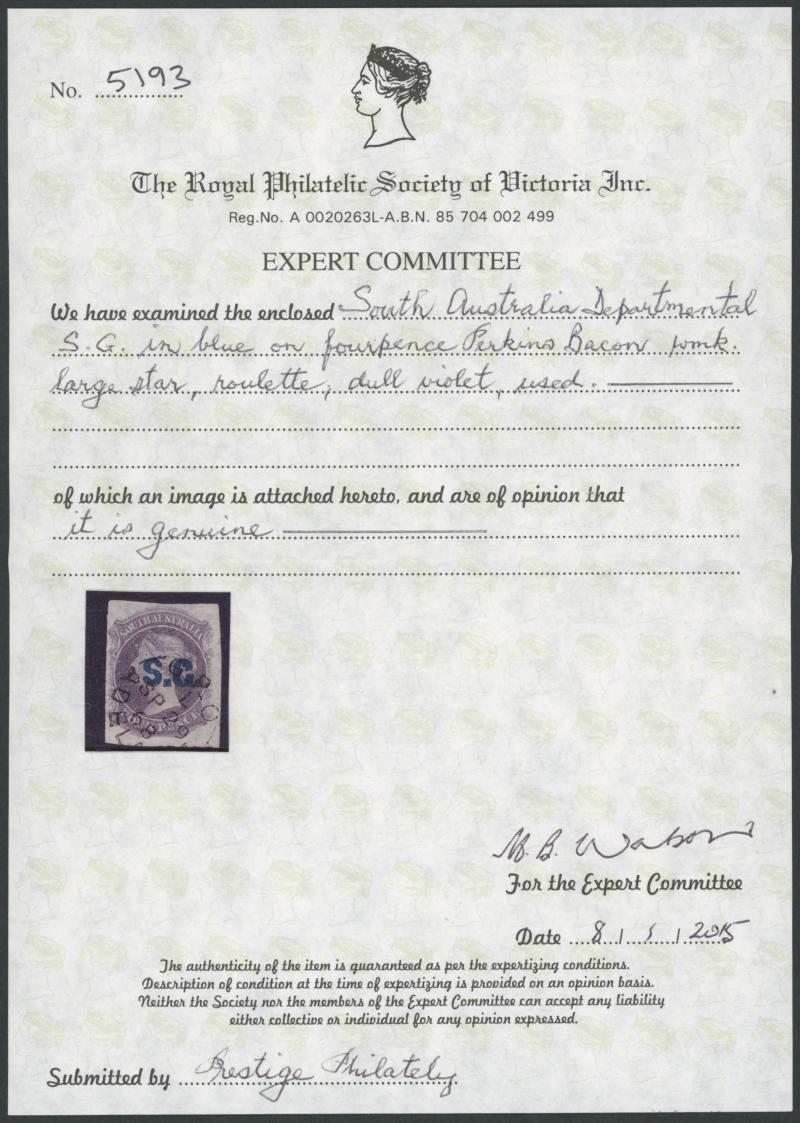 No. 5193
The Royal Philatelic Society of Victoria Inc.
Reg.No. A 0020263L-A.B.N. 85 704 002 499
EXPERT COMMITTEE
We have examined the enclosed South Australia Departmental
S.G. in blue on fourpence Perkins Bacon wmk.
large star, roulette, dull violet, used.
of which an image is attached hereto, and are of opinion that
it is genuine
SOUTH AUSTRALIA
S.G.
SP 29
68
M. B. Watson
For the Expert Committee
Date 8 / / 2015
The authenticity of the item is guaranteed as per the expertizing conditions.
Description of condition at the time of expertizing is provided on an opinion basis.
Neither the Society nor the members of the Expert Committee can accept any liability
either collective or individual for any opinion expressed.
Submitted by Prestige Philately